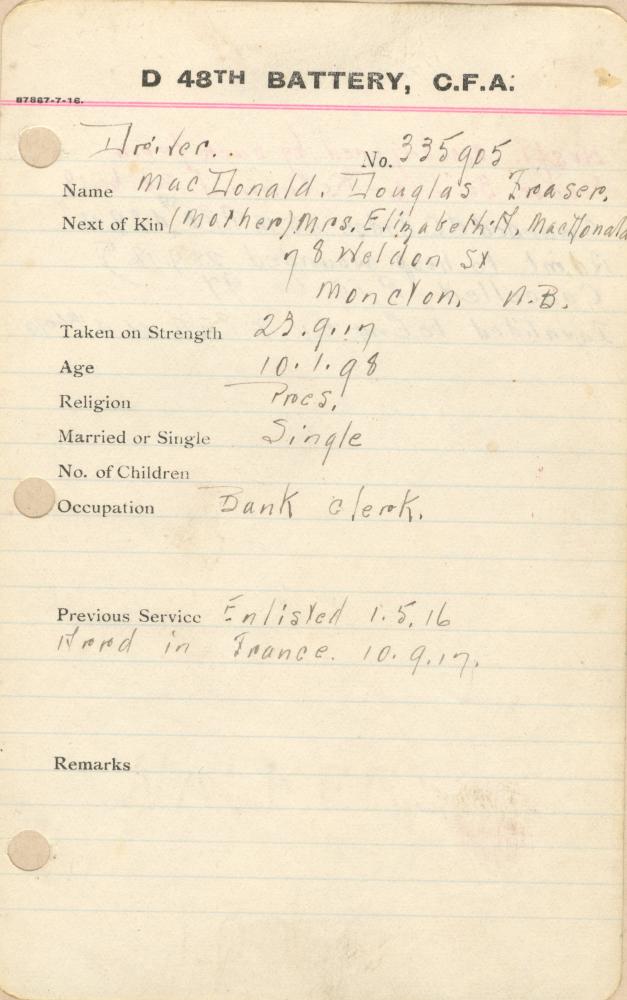 D 48TH BATTERY, C.F.A.
87867-7-16.
Driver. No. 335905
Name MacDonald. Douglas Fraser.
Next of Kin (Mother) Mrs. Elizabeth. H. MacDonald
78 Weldon St
Moncton, N.B.
Taken on Strength 23.9.17
Age 10.1.98
Religion Pres.
Married or Single Single
No. of Children
Occupation Bank Clerk.
Previous Service Enlisted 1.5.16
Arrvd in France. 10.9.17.
Remarks